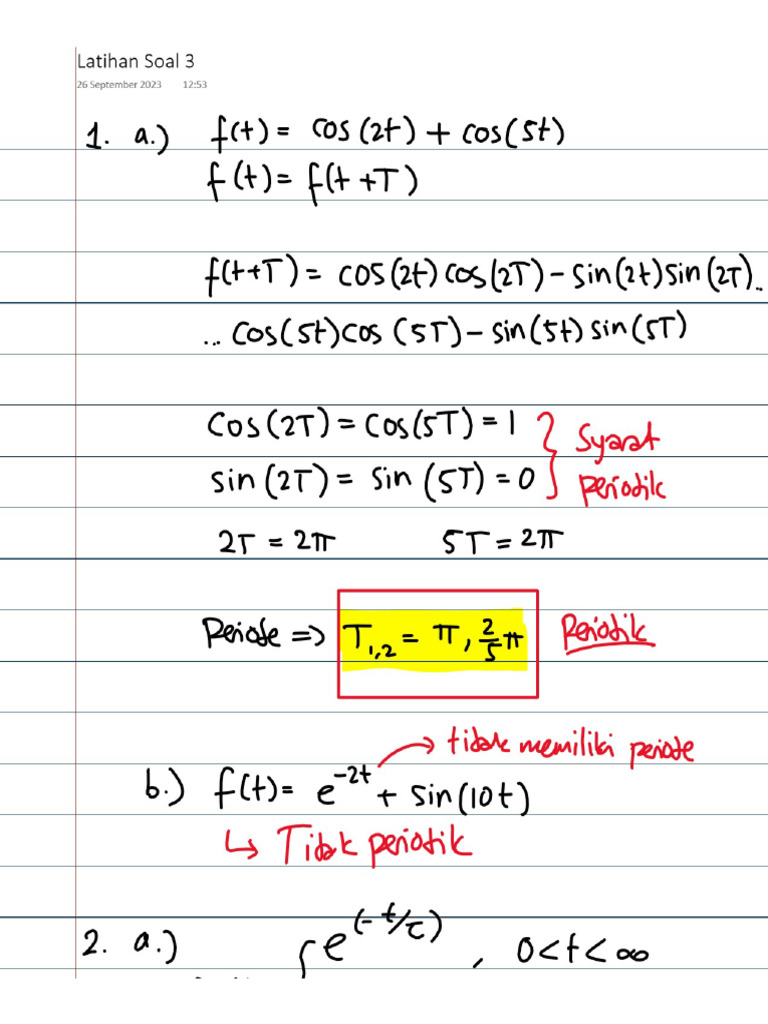 Latihan Soal 3
26 September 2023 12:53
1. a.) f(t) = cos(2t) + cos(5t)
f(t) = f(t+T)
f(t+T) = cos(2t)cos(2T) - sin(2t)sin(2T)..
...cos(5t)cos(5T) - sin(5t)sin(5T)
cos(2T) = cos(5T) = 1 } Syarat
sin(2T) = sin(5T) = 0 } periodik
2T = 2π 5T = 2π
Periode => T₁,₂ = π, 2/5 π Periodik
→ tidak memiliki periode
b.) f(t) = e^-2t + sin(10t)
↳ Tidak periodik
2. a.) { e^(-t/τ) , 0<t<∞